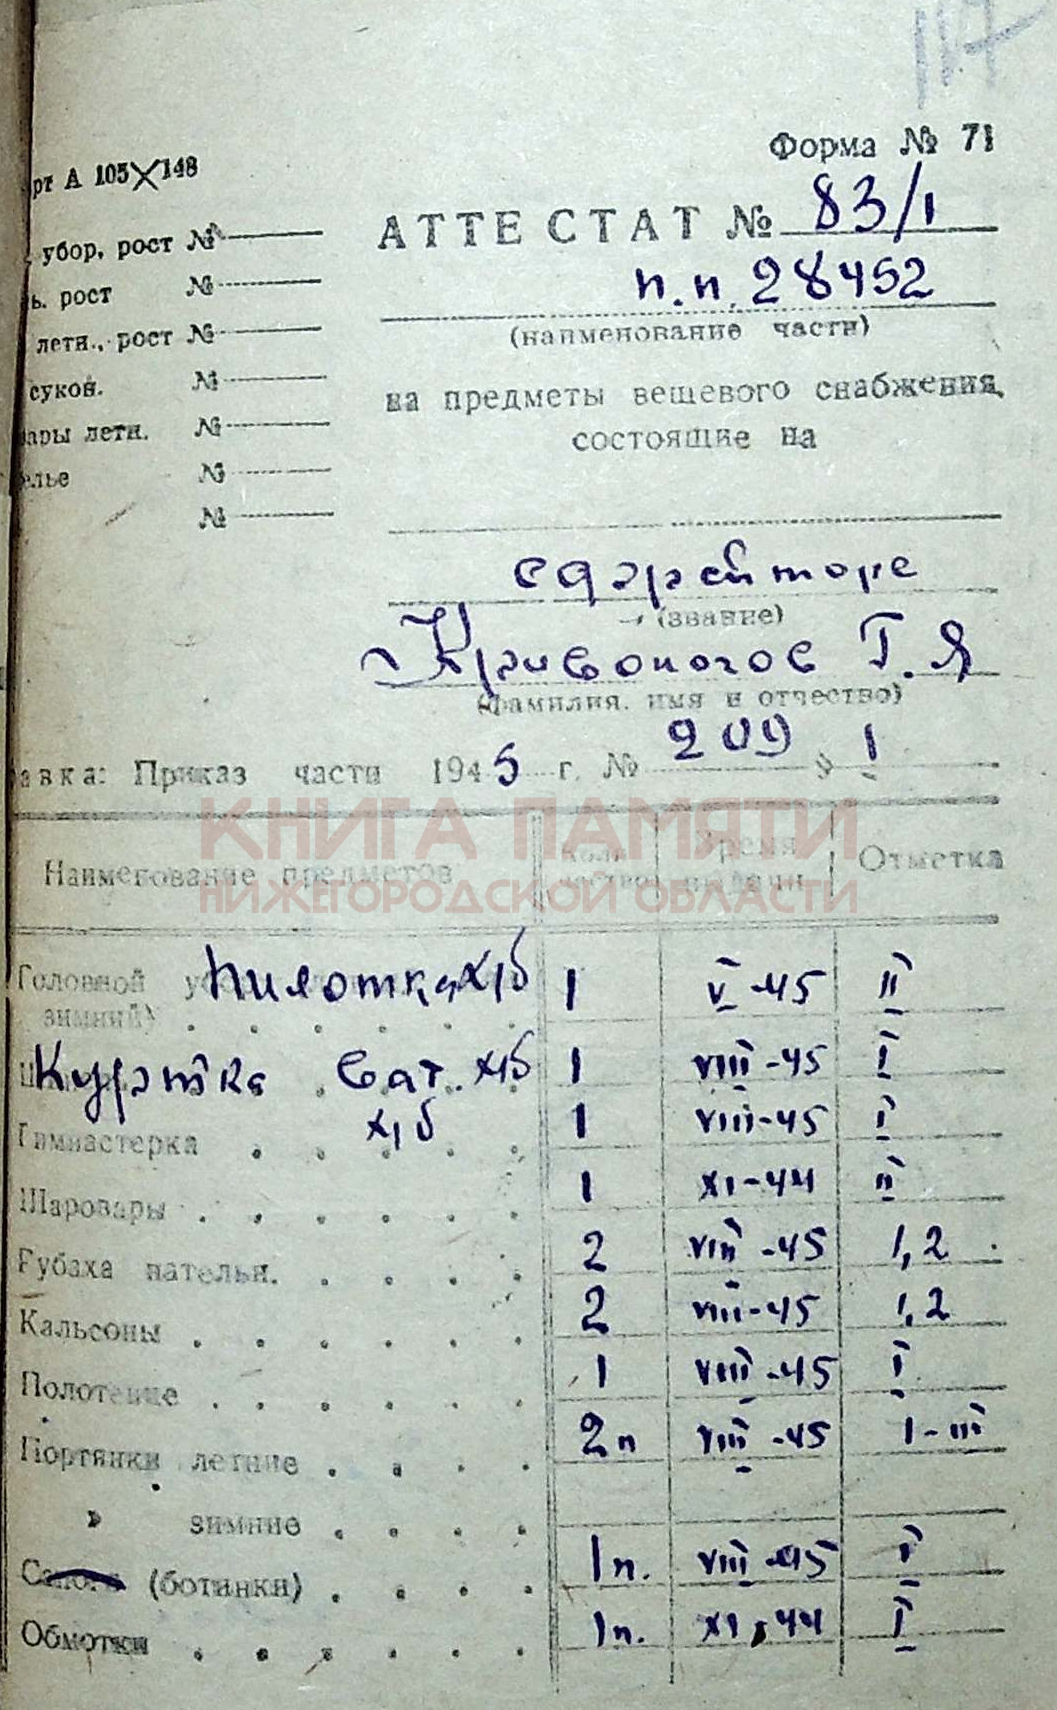 117
Форма № 71
рт А 105×148
АТТЕСТАТ № 83/1
убор, рост №
п.п. 28452
ь. рост №
(наименование части)
летн., рост №
сукон. №
на предметы вещевого снабжения,
ары летн. №
состоящие на
елье №
№
ефрейторе
(звание)
Кривоногов Г. Я
(фамилия, имя и отчество)
авка: Приказ части 1945 г. № 209 § 1
КНИГА ПАМЯТИ
НИЖЕГОРОДСКОЙ ОБЛАСТИ
Наименование предметов Количество Время выдачи Отметка
Головной Пилотка х/б 1 V-45 II
зимний)
Куртка ват. х/б 1 VIII-45 I
Гимнастерка х/б 1 VIII-45 I
Шаровары 1 XI-44 II
Рубаха нательн. 2 VIII-45 1,2
Кальсоны 2 VIII-45 1,2
Полотенце 1 VIII-45 I
Портянки летние 2п VIII-45 I-III
» зимние
Сапоги (ботинки) 1п. VIII-45 I
Обмотки 1п. XI-44 I